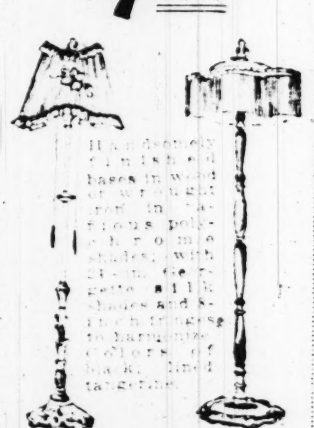 Handsomely
finished
bases in wood
or wrought
iron in va-
rious poly-
chrome
shades; with
24-inch Geor-
gette silk
shades and 8-
inch fringes
to harmonize
Colors of
black, lined
tangerine.